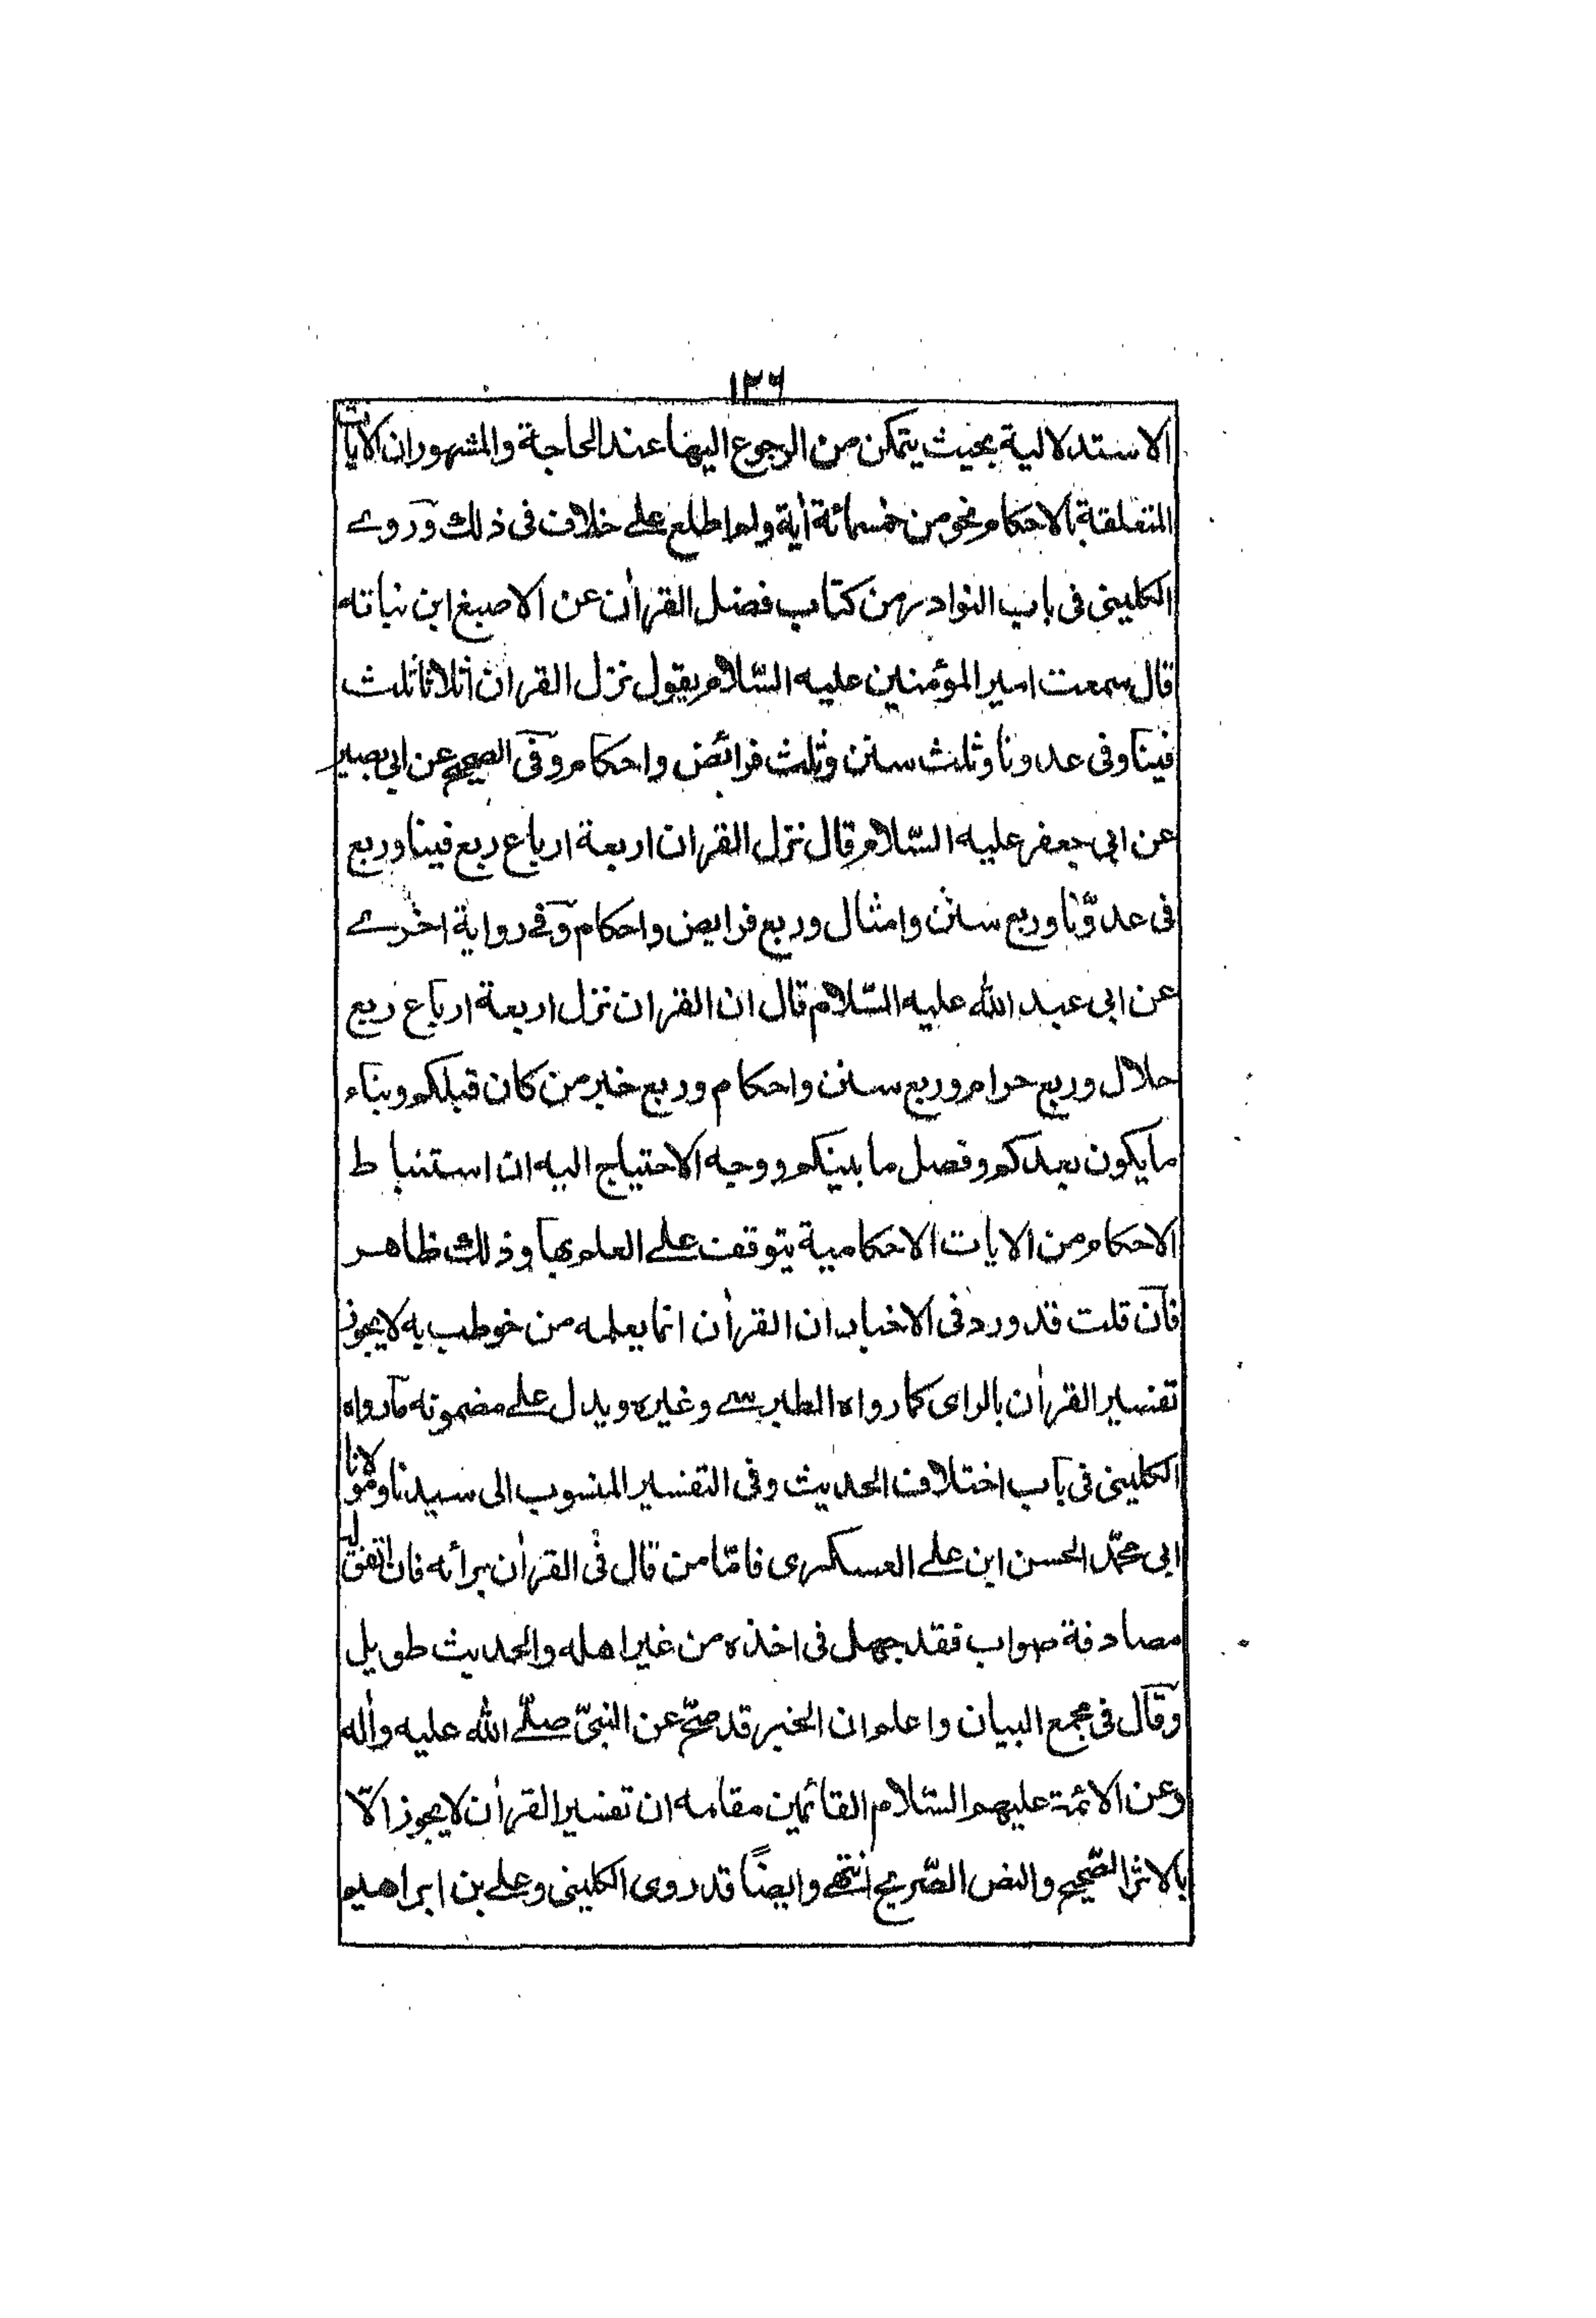 ١٢٦
الاستدلالية بحيث يتمكن من الرجوع اليها عند الحاجة والمشهور ان الآيات
المتعلقة بالاحكام نحو من خمسمائة اٰية ولم اطلع علے خلاف فى ذلك وروے
الكلينى فى باب النوادر من كتاب فضل القراٰن عن الاصبغ ابن نباته
قال سمعت امير المؤمنين عليه السّلام يقول نزل القران أثلاثا ثلث
فينا وفى عدونا وثلث سنن وثلث فرائض واحكام وفى الصحيح عن ابى بصير
عن ابى جعفر عليه السّلام قال نزل القران اربعة ارباع ربع فينا وربع
فى عدوّنا وربع سنن وامثال وربع فرايض واحكام وفے رواية اخرے
عن ابى عبد الله عليه السّلام قال ان القران نزل اربعة ارباع ربع
حلال وربع حرام وربع سنن واحكام وربع خبر من كان قبلكم ونباء
ما يكون بعدكم وفصل ما بينكم ووجه الاحتياج اليه ان استنباط
الاحكام من الايات الاحكامية يتوقف علے العلم بها وذلك ظاهر
فان قلت قد ورد فى الاخبار ان القراٰن انما يعلمه من خوطب به لا يجوز
تفسير القراٰن بالراى كما رواه الطبرسے وغيره ويدل علے مضمونه ما رواه
الكلينى فى باب اختلاف الحديث وفى التفسير المنسوب الى سيدنا ومولانا
ابى محمّد الحسن ابن علے العسكرى فامّا من قال فى القراٰن برائه فان اتفق له
مصادفة صواب فقد جهل فى اخذه من غير اهله والحديث طويل
وقال فى مجمع البيان واعلم ان الخبر قد صحّ عن النبىّ صلّے الله عليه واٰله
وعن الائمة عليهم السّلام القائمين مقامه ان تفسير القراٰن لا يجوز الاّ
بالاثر الصّحيح والنص الصّريح انتهے وايضًا قد روى الكلينى وعلے بن ابراهيم